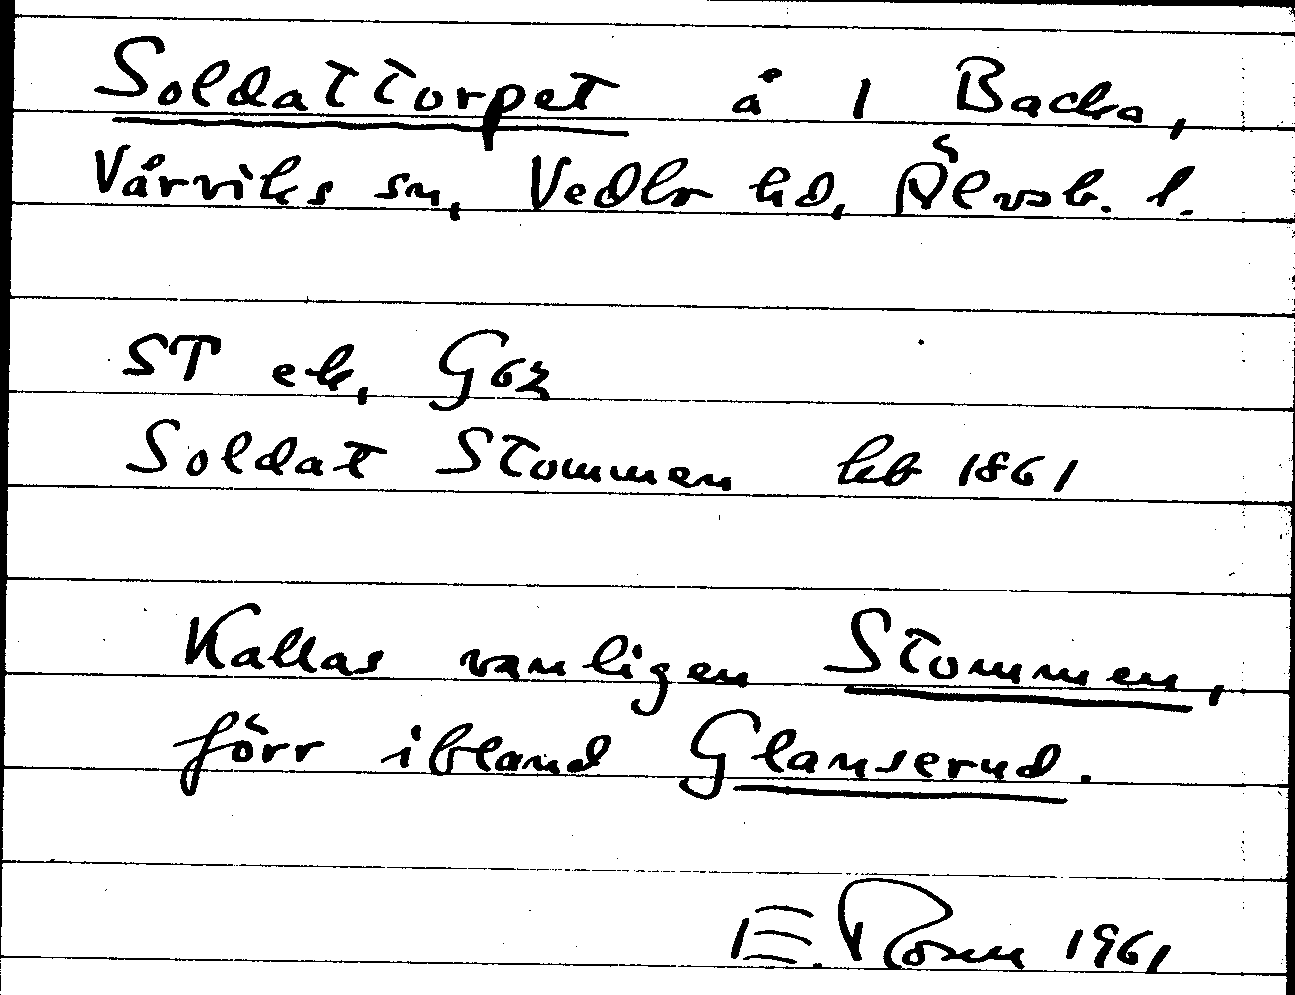 Soldattorpet å 1 Backa,
Vårviks sn, Vedbo hd, Älvsb. l.
ST ek, G62
Soldat Stommen hb 1861
Kallas vanligen Stommen,
förr ibland Glanserud.
E. Rosen 1961